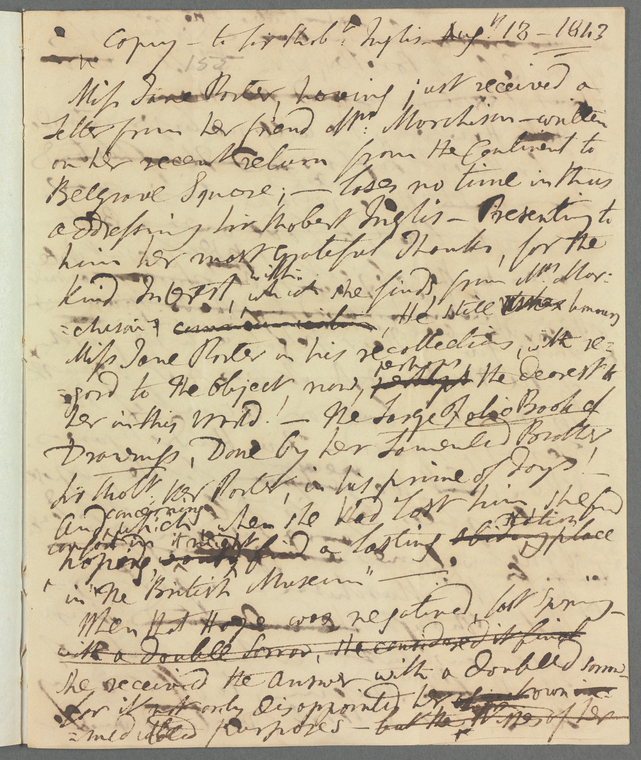 Copy – to Sir Rob.t Inglis – Aug.t 13 – 1843
155
Miss Jane Porter, having just received a
Letter from her friend Mrs. Murchison – written
on her recent return from the Continent to
Belgrave Square; – loses no time in thus
addressing Sir Robert Inglis – Presenting to
him her most grateful Thanks, for the
kind Interest, with which she finds from Mrs. Mur=
=chison, He still honours
Miss Jane Porter in his recollection, with re=
=gard to the Object, now, perhaps the dearest to
her in this World! – The Large Folio Book of
Drawings, Done by her Lamented Brother
Sir Rob.t Ker Porter, in his prime of Days! –
And concerning which, when she had lost him, she had
comfort in hoping it might find a lasting place
in "the British Museum" –
When that Hope was negatived, last Spring –
with a double sorrow, He considered it final
She received the answer with a doubled sorrow
for it not only disappointed her own
=mediated purposes – but the Wishes of her